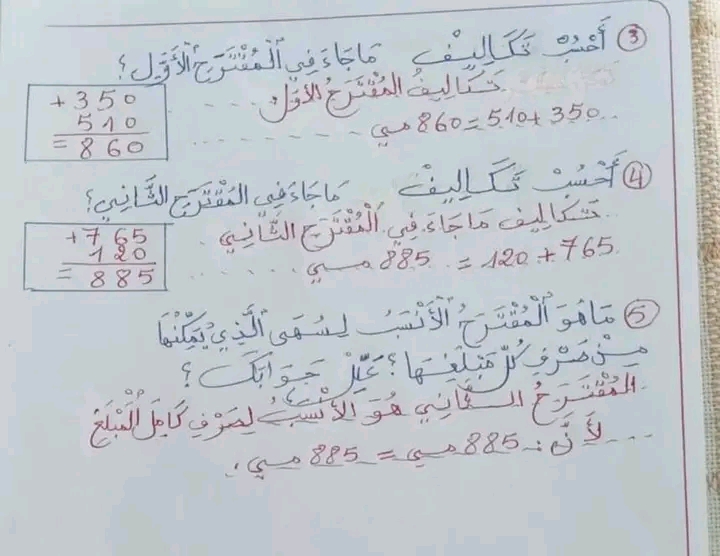 ③ أَحْسُبُ تَكَالِيفْ مَا جَاءَ فِي الْمُقْتَرَحِ الْأَوَّلِ؟
تَكَالِيفُ الْمُقْتَرَحُ الْأَوَّلِ
350 + 510 = 860 مي
+ 350
510
= 860
④ أَحْسُبْ تَكَالِيفْ مَا جَاءَ فِي الْمُقْتَرَحِ الثَّانِي؟
تَكَالِيف مَا جَاءَ فِي الْمُقْتَرَحِ الثَّانِي
765 + 120 = 885 مي
+ 765
120
= 885
⑤ مَا هُوَ الْمُقْتَرَحُ الْأَنْسَبُ لِسُهَى الَّذِي يُمَكِّنُهَا
مِنْ صَرْفِ كُلِّ مَبْلَغِهَا؟ عَلِّلْ جَوَابَكَ؟
الْمُقْتَرَحُ الثَّانِي هُوَ الْأَنْسَبُ لِصَرْفِ كَامِلَ الْمَبْلَغْ
لِأَنَّ: 885 مي = 885 مي.